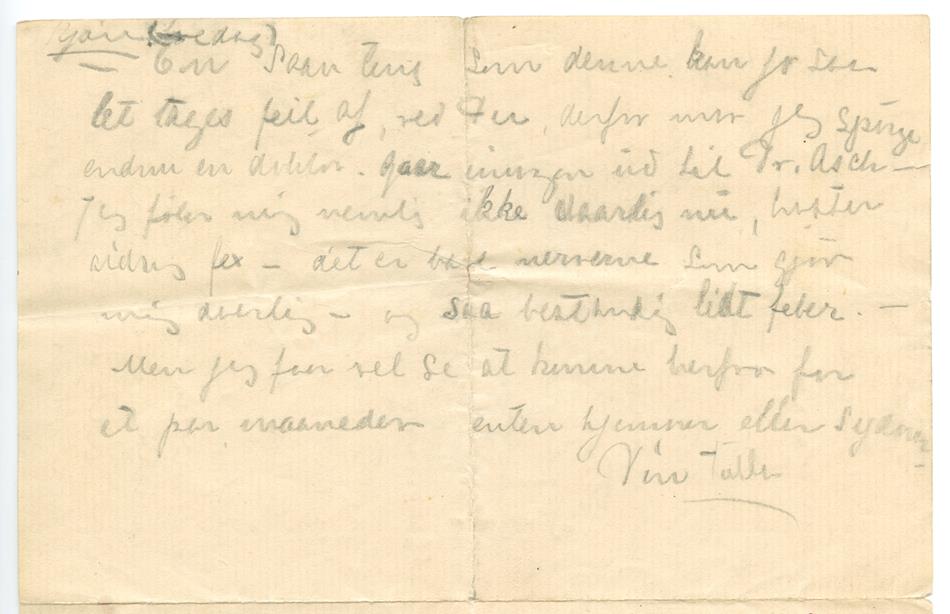 (tredag)
En saan ting som denne kan jo saa
let tages feil af, ved De, derfor maa jeg spørge
endnu en doktor. Gaar imorgen ud til Dr. Asch —
Jeg føler mig nemlig ikke daarlig nu, hoster
aldrig fex — det er bare nerverne som gjør
mig daarlig — og saa bestandig lidt feber. —
Men jeg faar vel se at komme herfra for
et par maaneder enten hjemover eller sydover
Din